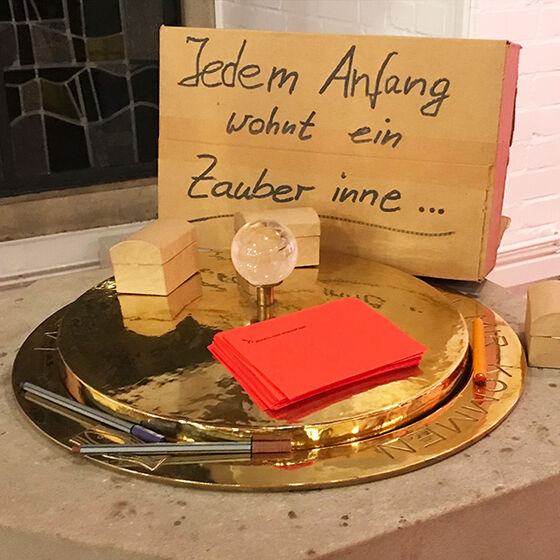 Jedem Anfang
wohnt ein
Zauber inne ...
KOMMEN